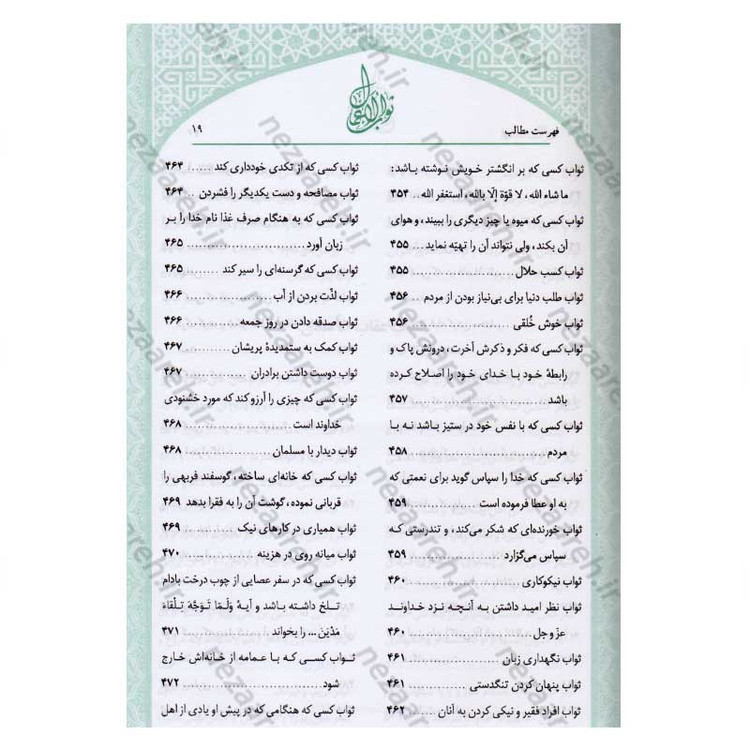 ثواب الاعمال
فهرست مطالب
۱۹
ثواب کسی که بر انگشتر خویش نوشته باشد:
ما شاء الله ، لا قوّة إلّا بالله، استغفر الله ... ۴۵۴
ثواب کسی که میوه یا چیز دیگری را ببیند ، و هوای
آن بکند، ولی نتواند آن را تهیّه نماید ... ۴۵۵
ثواب کسب حلال ... ۴۵۵
ثواب طلب دنیا برای بی‌نیاز بودن از مردم ... ۴۵۶
ثواب خوش خُلقی ... ۴۵۶
ثواب کسی که فکر و ذکرش آخرت ، درونش پاک و
رابطهٔ خود با خدای خود را اصلاح کرده
باشد ... ۴۵۷
ثواب کسی که با نفس خود در ستیز باشد نه با
مردم ... ۴۵۸
ثواب کسی که خدا را سپاس گوید برای نعمتی که
به او عطا فرموده است ... ۴۵۹
ثواب خورنده‌ای که شکر می‌کند ، و تندرستی که
سپاس می‌گزارد ... ۴۵۹
ثواب نیکوکاری ... ۴۶۰
ثواب نظر امید داشتن به آنچه نزد خداوند
عزّ و جل ... ۴۶۰
ثواب نگهداری زبان ... ۴۶۱
ثواب پنهان کردن تنگدستی ... ۴۶۱
ثواب افراد فقیر و نیکی کردن به آنان ... ۴۶۲
ثواب کسی که از تکدی خودداری کند ... ۴۶۴
ثواب مصافحه و دست یکدیگر را فشردن ... ۴۶۴
ثواب کسی که به هنگام صرف غذا نام خدا را بر
زبان آورد ... ۴۶۵
ثواب کسی که گرسنه‌ای را سیر کند ... ۴۶۵
ثواب لذّت بردن از آب ... ۴۶۶
ثواب صدقه دادن در روز جمعه ... ۴۶۶
ثواب کمک به ستمدیدهٔ پریشان ... ۴۶۷
ثواب دوست داشتن برادران ... ۴۶۷
ثواب کسی که چیزی را آرزو کند که مورد خشنودی
خداوند است ... ۴۶۸
ثواب دیدار با مسلمان ... ۴۶۸
ثواب کسی که خانه‌ای ساخته ، گوسفند فربهی را
قربانی نموده ، گوشت آن را به فقرا بدهد ۴۶۹
ثواب همیاری در کارهای نیک ... ۴۶۹
ثواب میانه روی در هزینه ... ۴۷۰
ثواب کسی که در سفر عصایی از چوب درخت بادام
تلخ داشته باشد و آیهٔ وَلَمّا تَوَجَّهَ تِلْقاءَ
مَدْیَنَ ... را بخواند ... ۴۷۱
ثواب کسی که با عمامه از خانه‌اش خارج
شود ... ۴۷۲
ثواب کسی که هنگامی که در پیش او یادی از اهل
nezaareh.ir